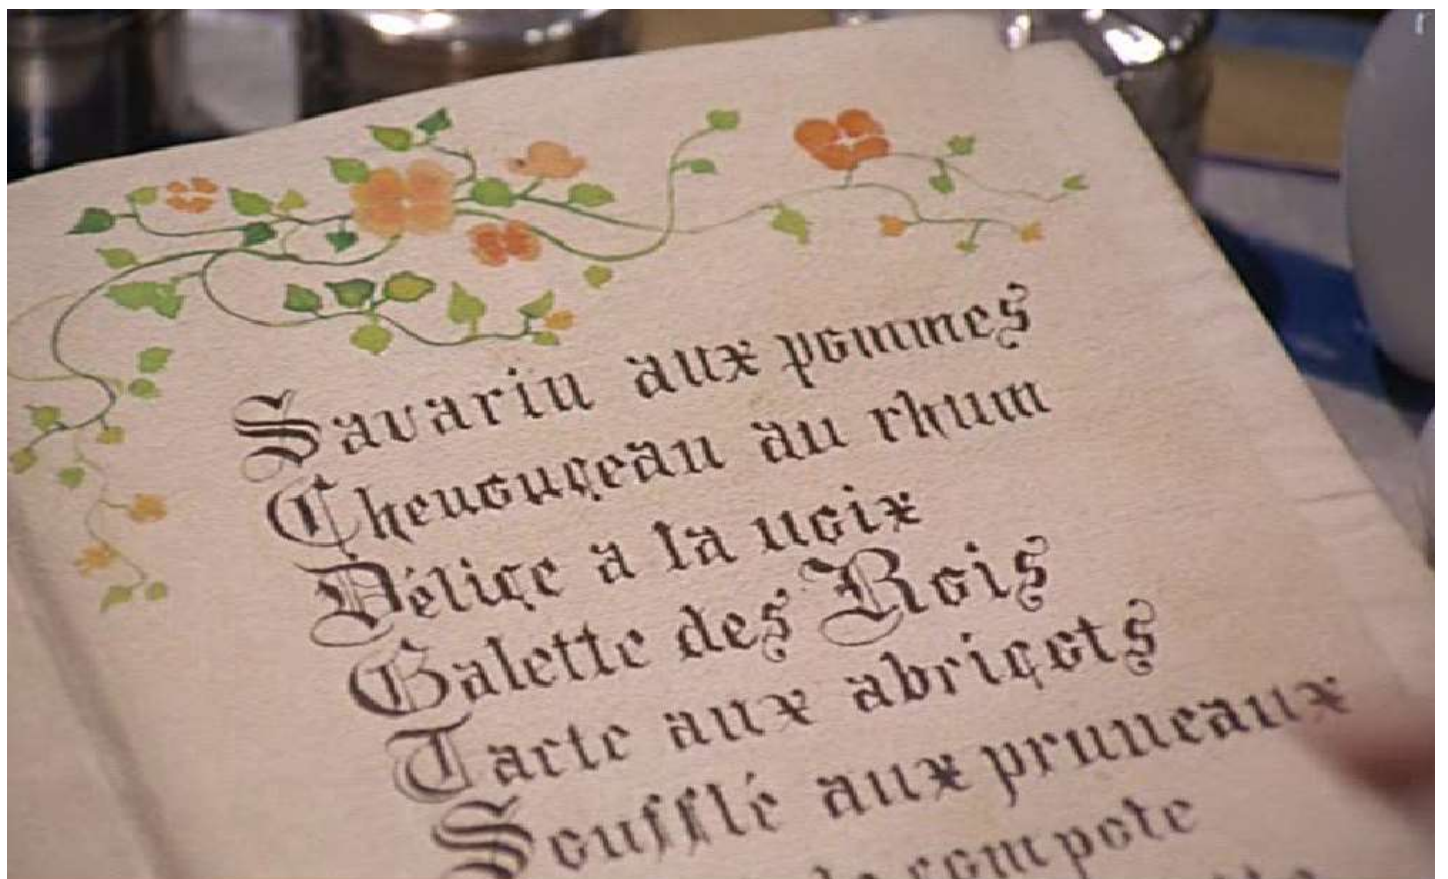 Savarin aux pommes
Chenonceau au rhum
Délice a la noix
Galette des Rois
Tarte aux abricots
Soufflé aux pruneaux
de compote